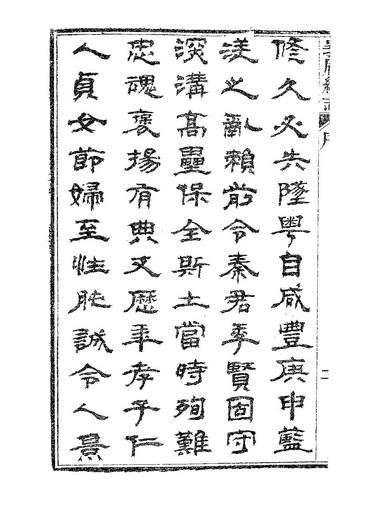 修久必失墜粵自咸豐庚申藍
之亂賴前令秦君季賢固守
深溝高壘保全斯土當時殉難
忠魂褒揚有典又歷年孝子仁
人貞女節婦至性肫誠令人景
二